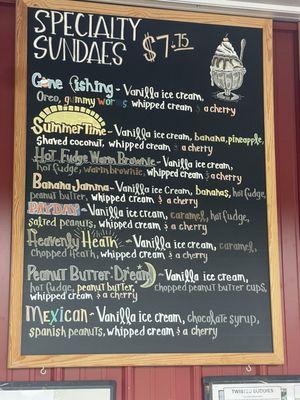 SPECIALTY
SUNDAES $7.75
Gone Fishing - Vanilla ice cream,
Oreo, gummy worms, whipped cream & a cherry
Summer Time - Vanilla ice cream, banana, pineapple,
shaved coconut, whipped cream & a cherry
Hot Fudge Warm Brownie - Vanilla ice cream,
hot fudge, warm brownie, whipped cream & a cherry
Banana Jamma - Vanilla Ice Cream, bananas, hot fudge,
peanut butter, whipped cream & a cherry
PAYDAY - Vanilla ice cream, caramel, hot fudge,
salted peanuts, whipped cream & a cherry
Heavenly Heath - Vanilla ice cream, caramel,
chopped Heath, whipped cream & a cherry
Peanut Butter Dream - Vanilla ice cream,
hot fudge, peanut butter, chopped peanut butter cups,
whipped cream & a cherry
Mexican - Vanilla ice cream, chocolate syrup,
spanish peanuts, whipped cream & a cherry
TWISTED BUDDIES